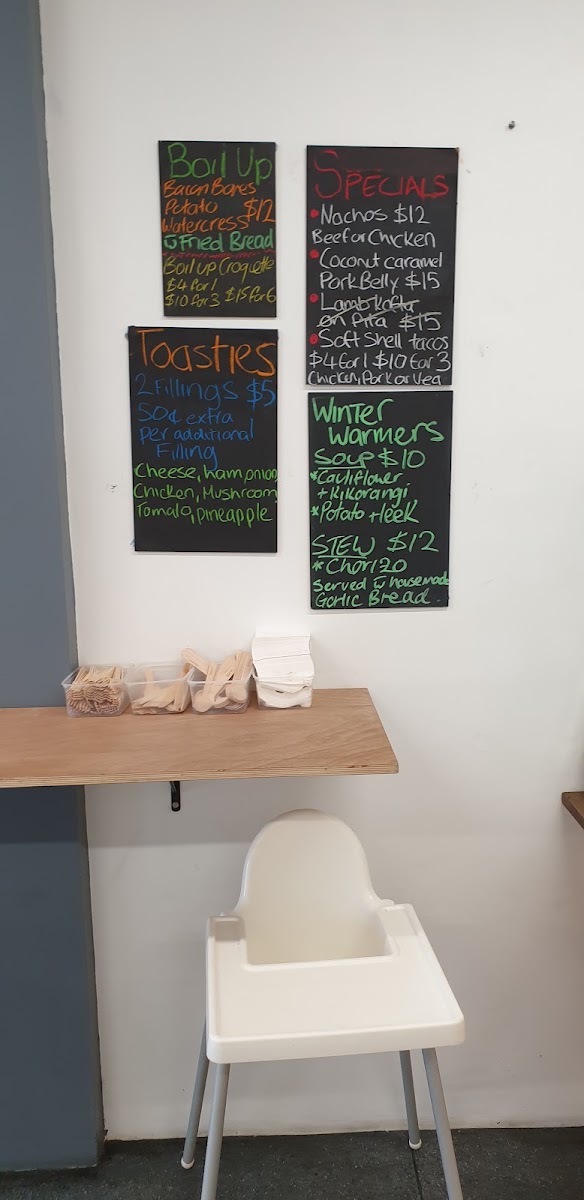 Boil Up
Bacon Bones
Potato $12
Watercress
w̄ Fried Bread
Boil up Croquette
$4 for 1
$10 for 3 $15 for 6
Toasties
2 Fillings $5
50¢ extra
per additional
Filling
Cheese, ham, onion,
Chicken, Mushroom,
Tomato, pineapple
SPECIALS
• Nachos $12
Beef or Chicken
• Coconut caramel
Pork Belly $15
• Lamb Kofta
on Pita $15
• Soft Shell tacos
$4 for 1 $10 for 3
Chicken, Pork or Veg
Winter
Warmers
SOUP $10
* Cauliflower
+ Kikorangi
* Potato + leek
STEW $12
* Chorizo
Served w̄ housemade
Garlic Bread